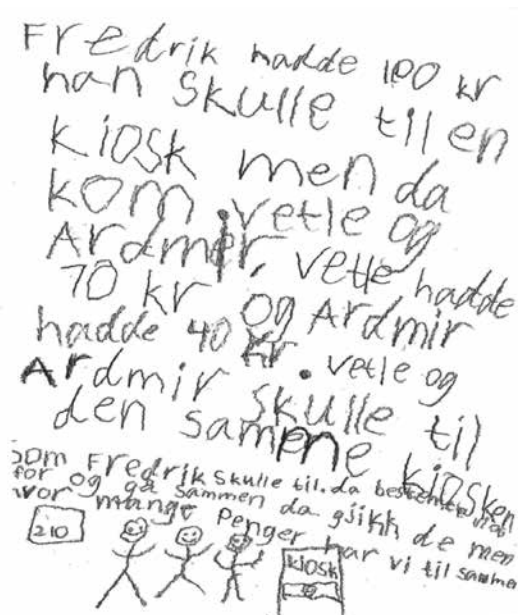 Fredrik hadde 100 kr
han skulle til en
kiosk men da
kom vetle og
Ardmir. vetle hadde
70 kr og Ardmir
hadde 40 kr. vetle og
Ardmir skulle til
den samme kiosken
som Fredrik skulle til. da bestemte
for og gå sammen da gjikk de men
vor mange Penger har vi til sammen
210
kiosk